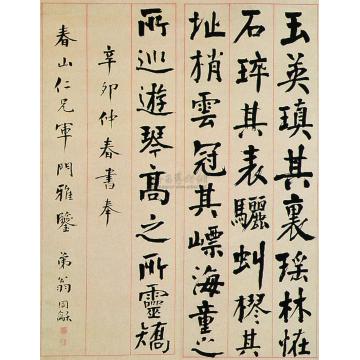 玉英瑱其裏瑶林恠
石琗其表驪虯樛其
址梢雲冠其嶛海童之
所巡遊琴高之所靈矯
辛卯仲春書奉
春山仁兄軍門雅鑒 弟翁同龢